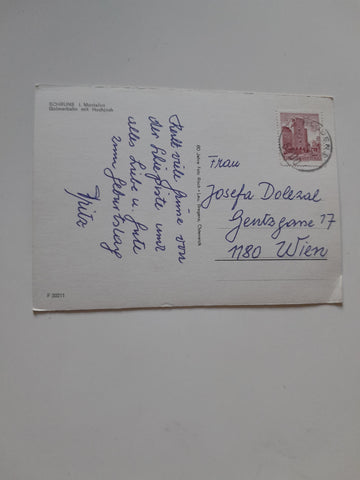 SCHRUNS i. Montafon
Golmerbahn mit Hochjoch
Recht viele Grüße von
der Skipiste und
alles Liebe u. Gute
zum Geburtstag
Frau
Josefa Dolezal
Gentzgasse 17
1180 Wien
F 32211